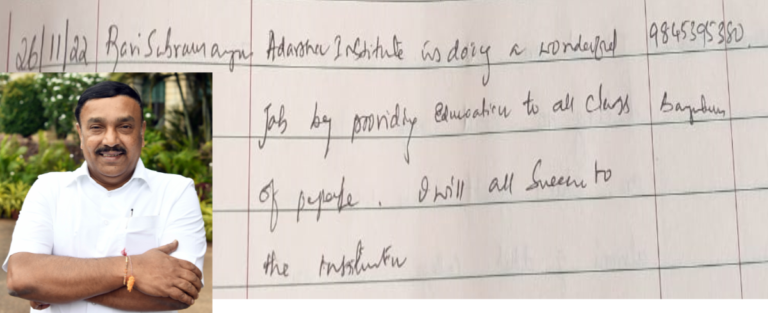 26/11/22 Ravi Subramanya Adarsha Institute is doing a wonderful 9845395380
Job by providing Education to all class
of people. I will all Success to
the Institution